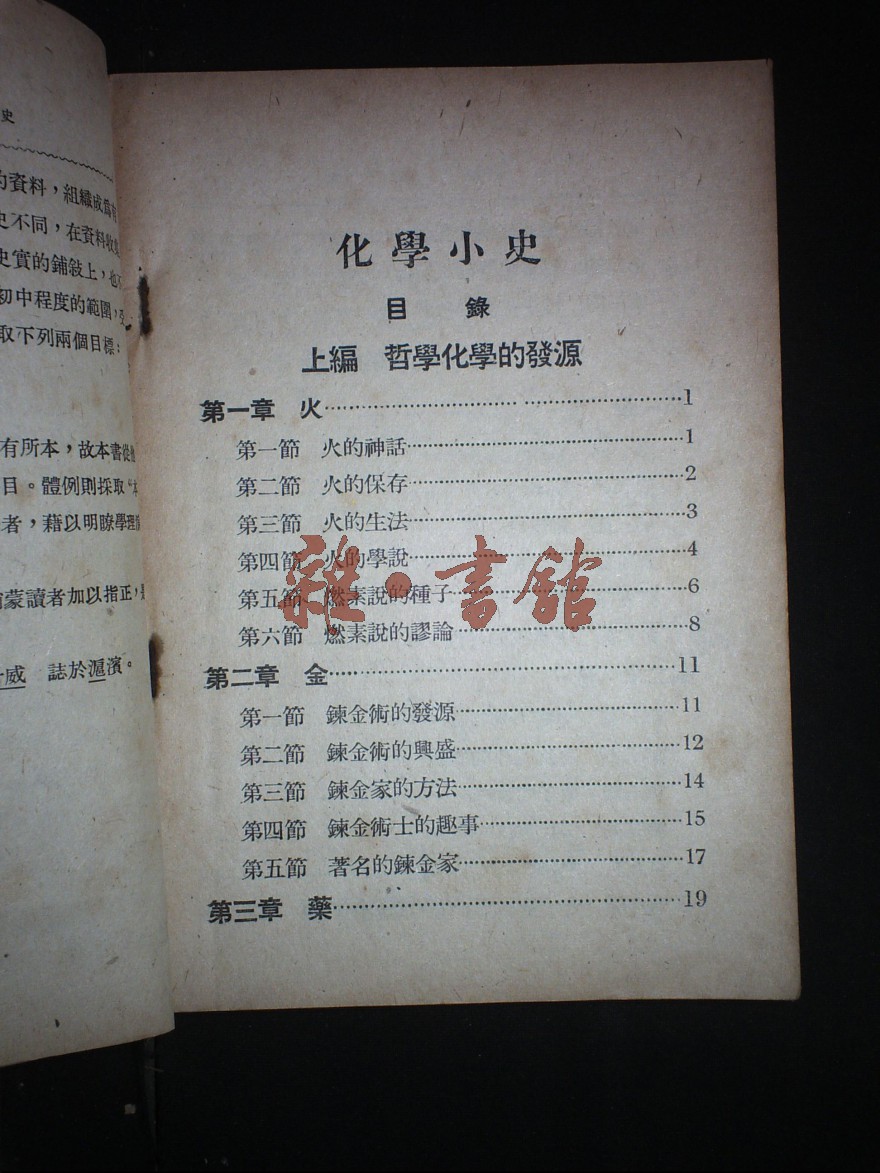 史
的資料，組織成爲有
史不同，在資料收
史實的鋪敍上，也不
初中程度的範圍，
取下列兩個目標：
有所本，故本書從
目。體例則採取“本
者，藉以明瞭學理
蒙讀者加以指正，
威　誌於滬濱。
化學小史
目　錄
上編　哲學化學的發源
第一章　火…………………………1
第一節　火的神話…………………………1
第二節　火的保存…………………………2
第三節　火的生法…………………………3
第四節　火的學說…………………………4
第五節　燃素說的種子…………………………6
第六節　燃素說的謬論…………………………8
第二章　金…………………………11
第一節　鍊金術的發源…………………………11
第二節　鍊金術的興盛…………………………12
第三節　鍊金家的方法…………………………14
第四節　鍊金術士的趣事…………………………15
第五節　著名的鍊金家…………………………17
第三章　藥…………………………19
雜·書館